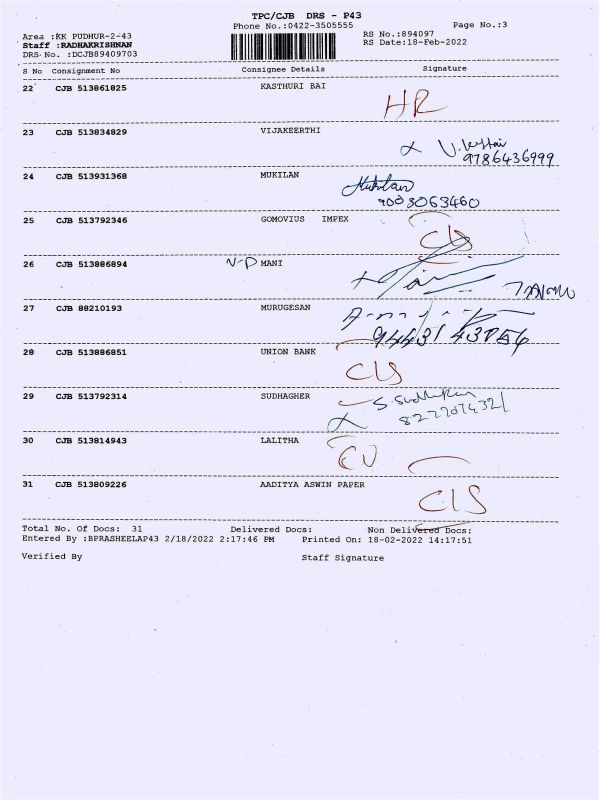 TPC/CJB DRS - P43
Phone No.:0422-3505555
Page No.:3
Area :KK PUDHUR-2-43
RS No.:894097
Staff :RADHAKRISHNAN
RS Date:18-Feb-2022
DRS No. :DCJB89409703
S No Consignment No Consignee Details Signature
22 CJB 513861825 KASTHURI BAI
HR
23 CJB 513834829 VIJAKEERTHI
9786436999
24 CJB 513931368 MUKILAN
Mukilan
9003063460
25 CJB 513792346 GOMOVIUS IMPEX
C/S
26 CJB 513886894 N-D MANI
27 CJB 88210193 MURUGESAN
28 CJB 513886851 UNION BANK
C/S
29 CJB 513792314 SUDHAGHER
30 CJB 513814943 LALITHA
31 CJB 513809226 AADITYA ASWIN PAPER
C/S
Total No. Of Docs: 31 Delivered Docs: Non Delivered Docs:
Entered By :BPRASHEELAP43 2/18/2022 2:17:46 PM Printed On: 18-02-2022 14:17:51
Verified By Staff Signature